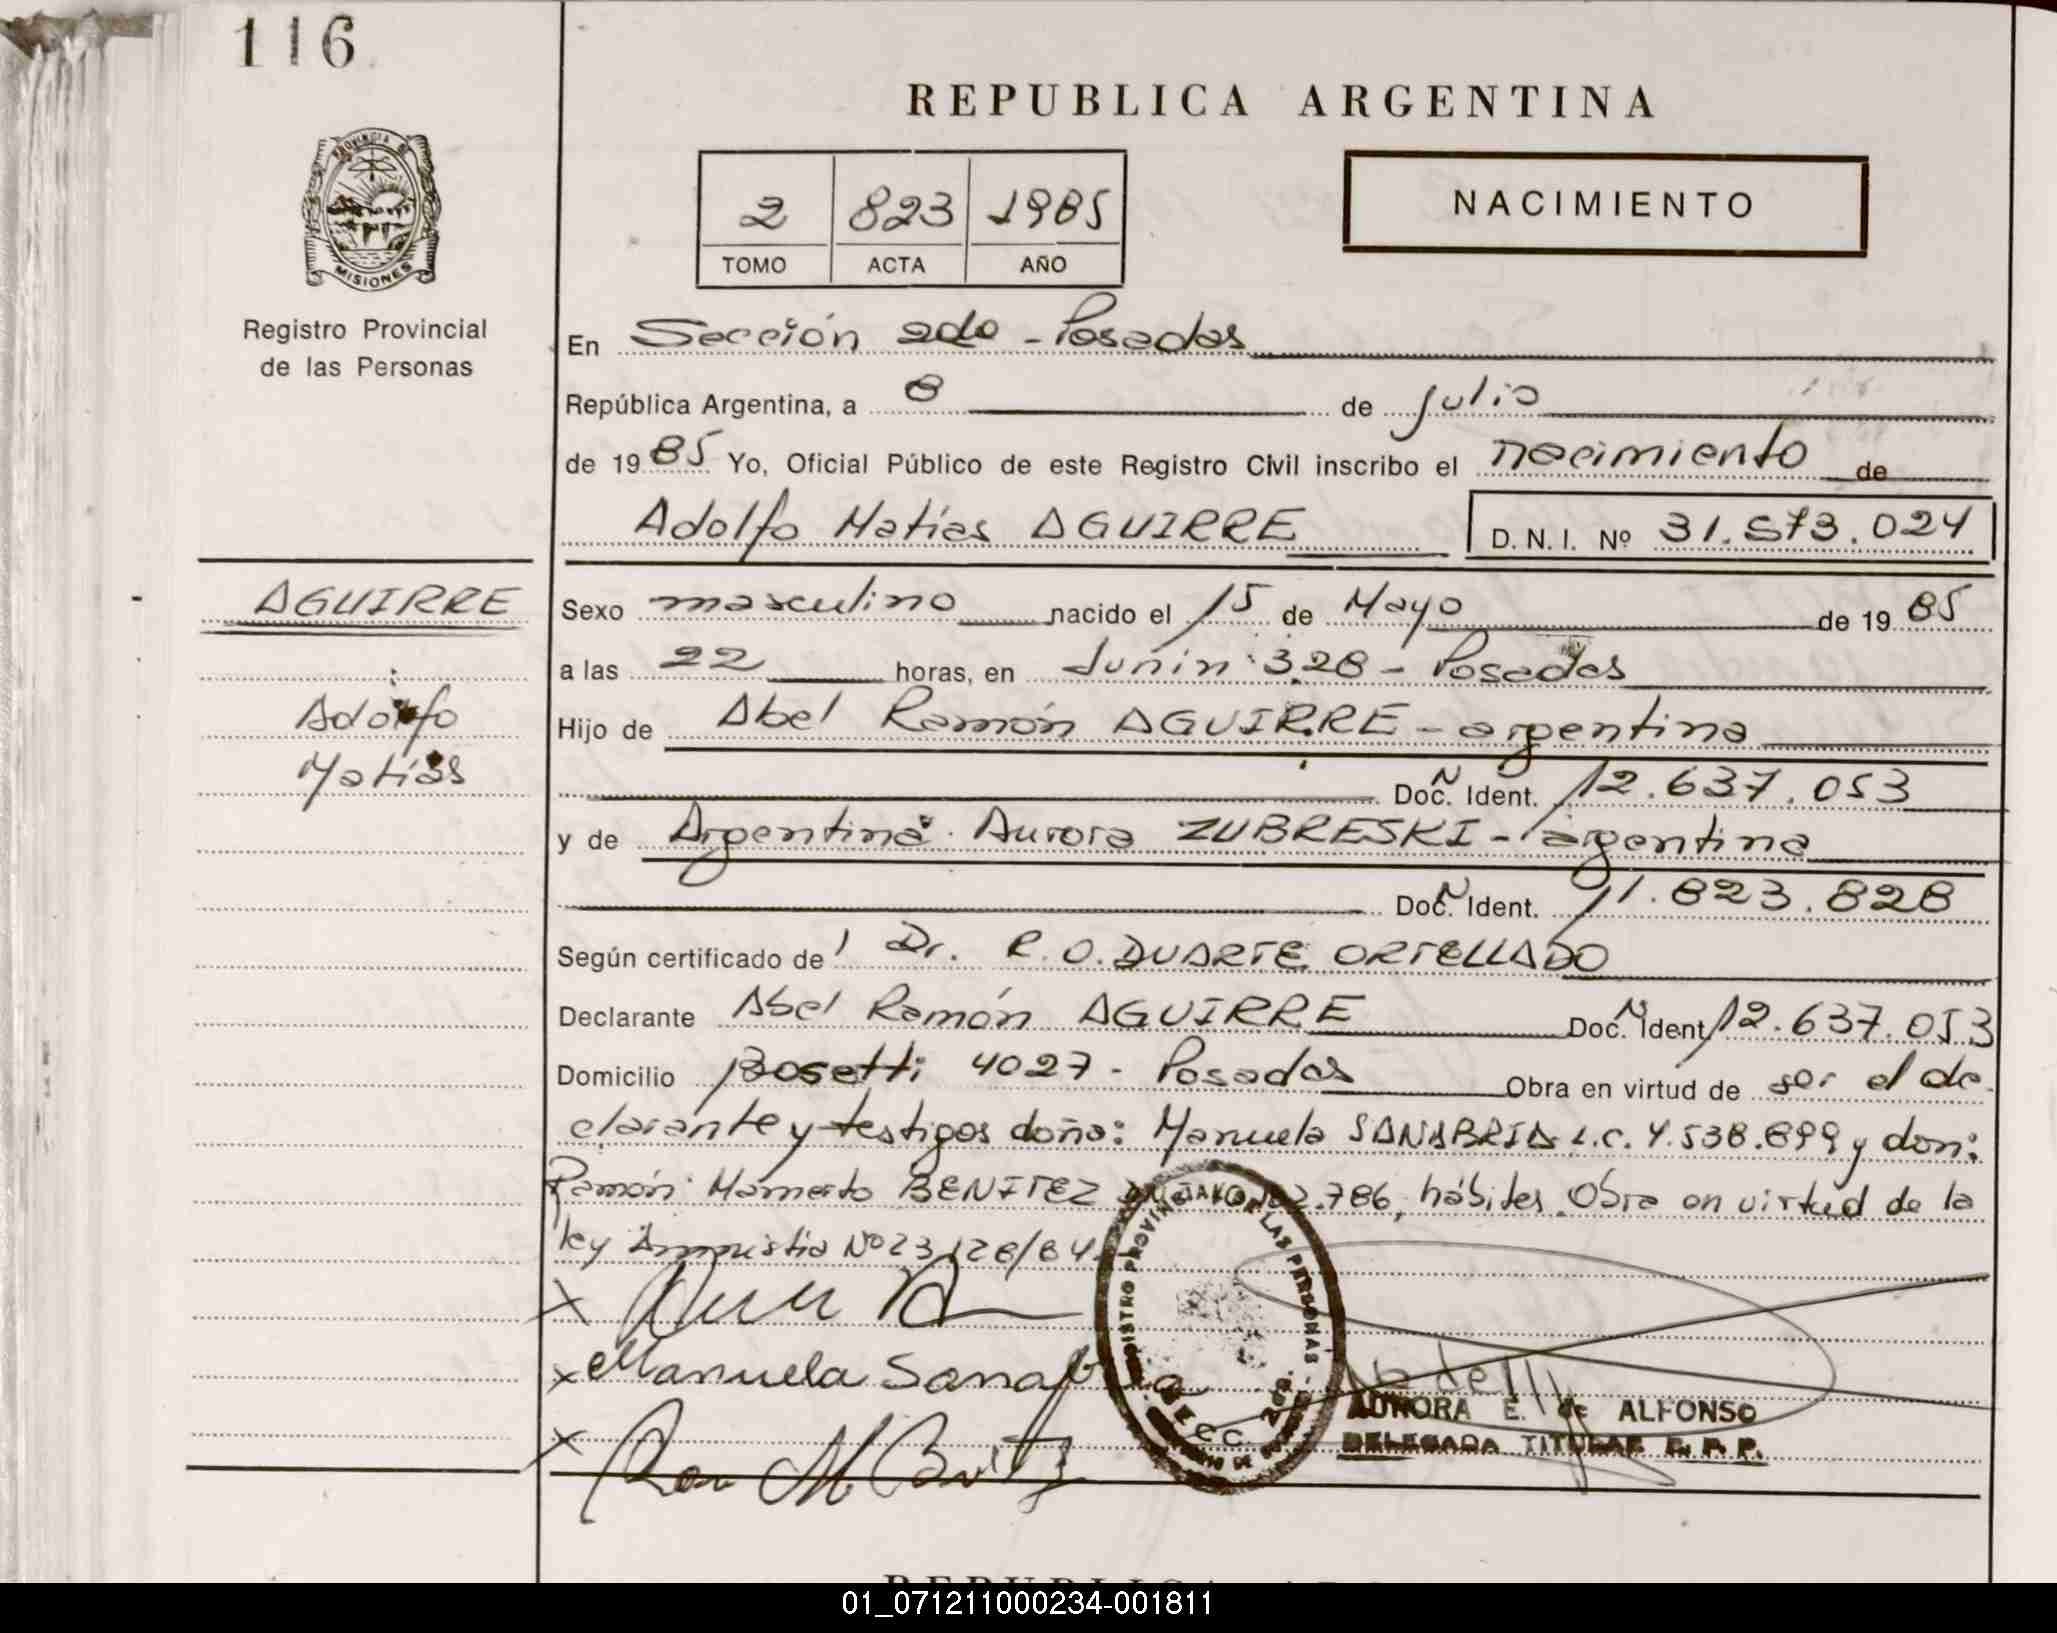 116
REPUBLICA ARGENTINA
PROVINCIA DE
MISIONES
Registro Provincial
de las Personas
2 823 1985
TOMO ACTA AÑO
NACIMIENTO
En Sección 2da - Posadas
República Argentina, a 8 de julio
de 1985 Yo, Oficial Público de este Registro Civil inscribo el nacimiento de
Adolfo Matías AGUIRRE D. N. I. Nº 31.573.024
AGUIRRE
Adolfo
Matías
Sexo masculino nacido el 15 de Mayo de 1985
a las 22 horas, en Junín 328 - Posadas
Hijo de Abel Ramón AGUIRRE - argentina
Doc. Ident. 12.637.053
y de Argentina Aurora ZUBRESKI - argentina
Doc. Ident. 11.823.828
Según certificado de Dr. R. O. DUARTE ORTELLADO
Declarante Abel Ramón AGUIRRE Doc. Ident 12.637.053
Domicilio Bosetti 4027 - Posadas Obra en virtud de ser el de
clarante y testigos doña: Manuela SANABRIA L.C. 4.538.899 y don:
Ramón Mamerto BENITEZ .786, hábiles. Obra en virtud de la
ley Amnistia Nº 23128/84.
Manuela Sanabria
REGISTRO PROVINCIAL DE LAS PERSONAS
SECC. 2da.
AURORA E. de ALFONSO
DELEGADA TITULAR R. P. P.
01_071211000234-001811